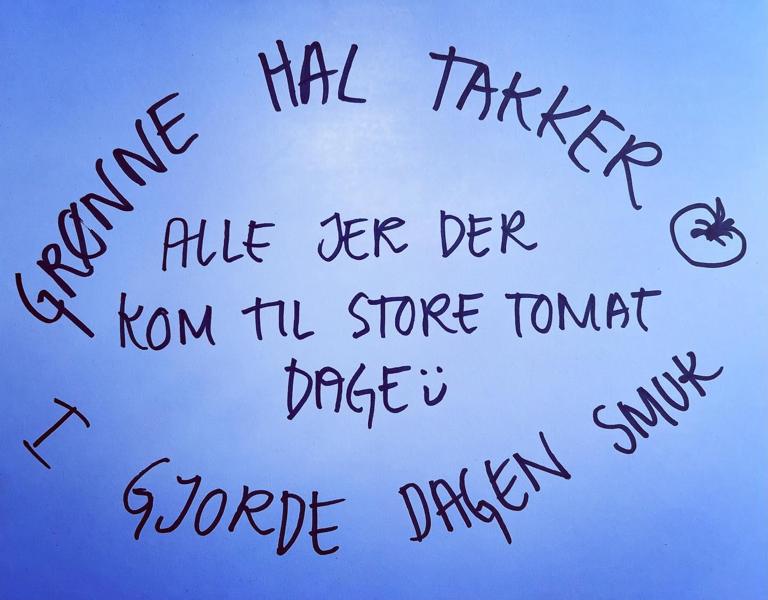 GRØNNE HAL TAKKER
ALLE JER DER
KOM TIL STORE TOMAT
DAGE ü
I GJORDE DAGEN SMUK